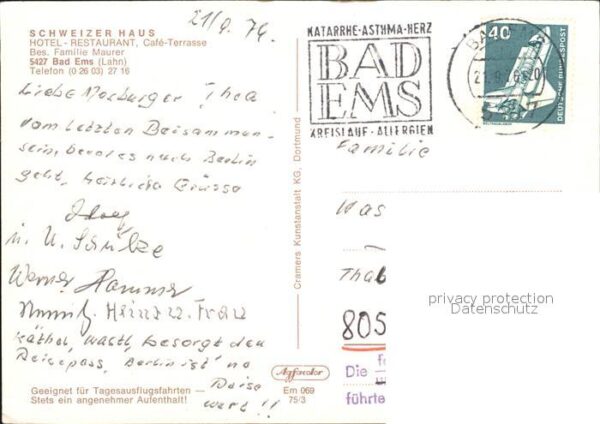 21/9. 76.
SCHWEIZER HAUS
HOTEL - RESTAURANT, Café-Terrasse
Bes. Familie Maurer
5427 Bad Ems (Lahn)
Telefon (0 26 03) 27 16
Liebe Thea
vom letzten Beisammen-
sein, bevor es nach Berlin
geht, herzliche Grüsse
u. U. Schulze
Werner Hammer
Heinz u. Frau
Käthel, Wastl, besorgt den
Reisepass, Berlin ist ne
Reise
wert!!
Geeignet für Tagesausflugsfahrten —
Stets ein angenehmer Aufenthalt!
Agfacolor
Em 069
75/3
Cramers Kunstanstalt KG, Dortmund
KATARRHE·ASTHMA·HERZ
BAD
EMS
KREISLAUF·ALLERGIEN
40
DEUTSCHE BUNDESPOST
Familie
Was
Thal
805
Die
führte
privacy protection
Datenschutz